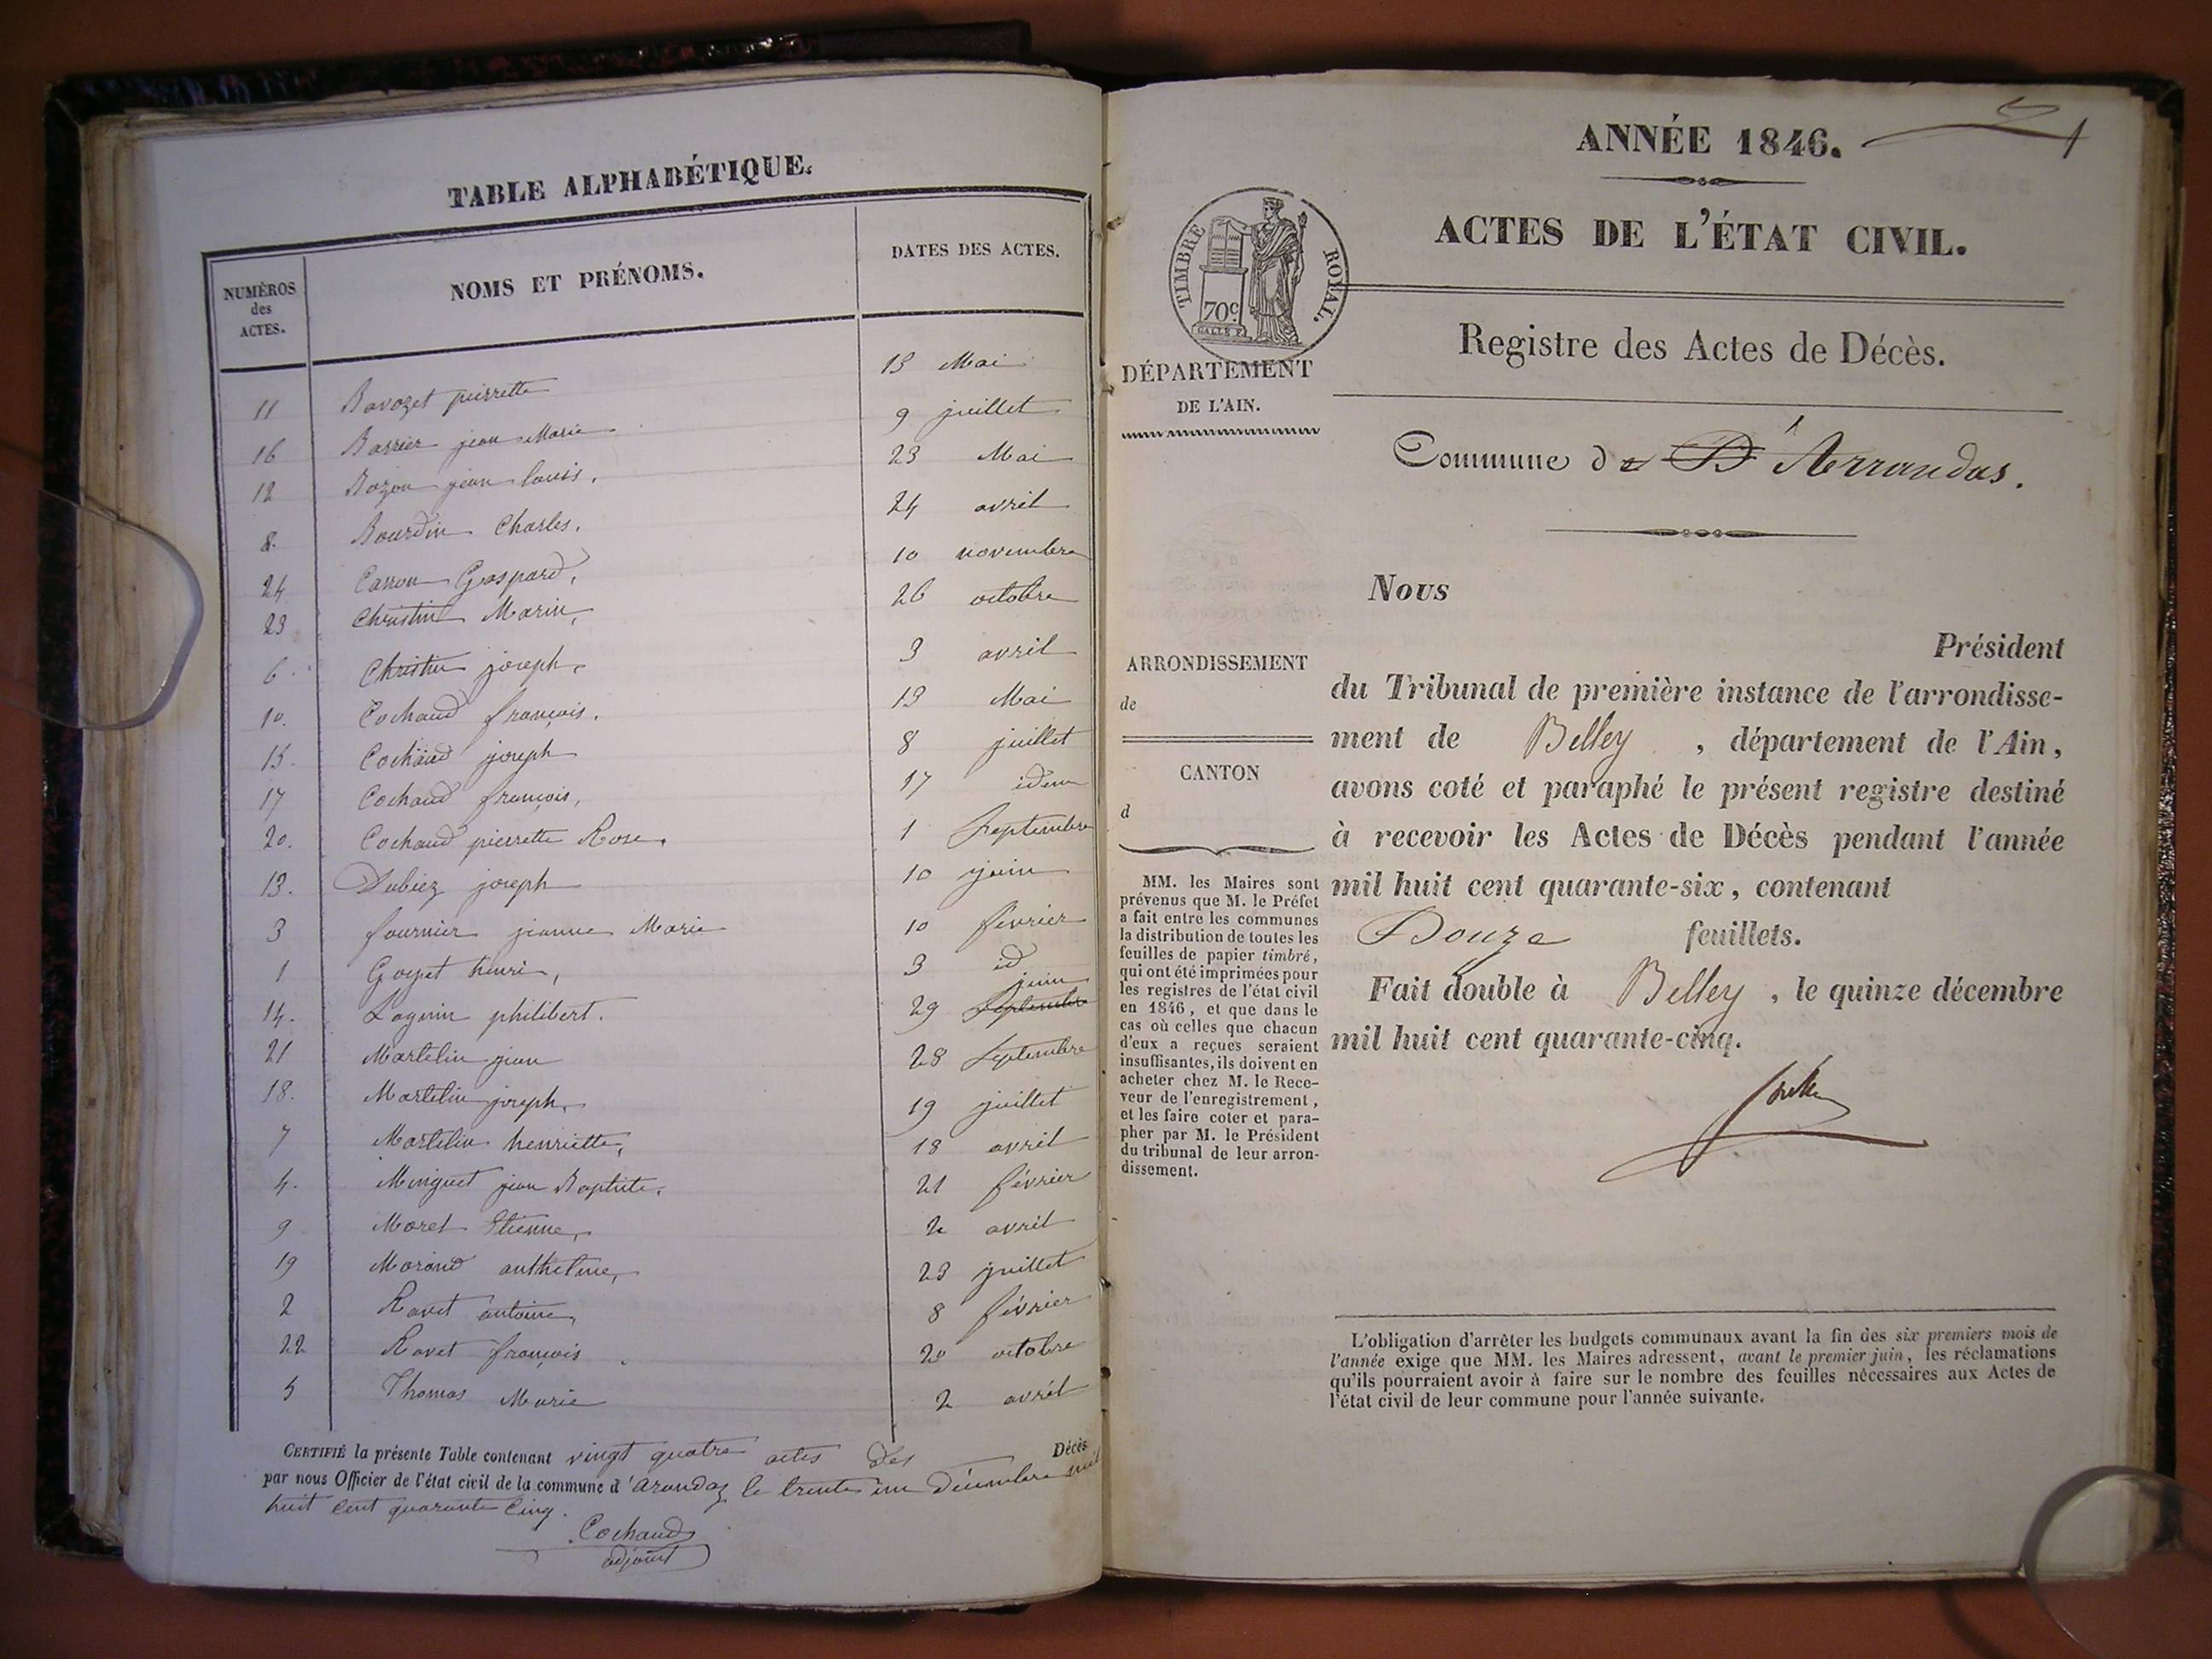 TABLE ALPHABÉTIQUE.
NUMÉROS des ACTES. NOMS ET PRÉNOMS. DATES DES ACTES.
11 Bavozet pierrette 13 Mai
16 Barrier jean Marie 9 juillet
12 Bozon jean louis. 23 Mai
8. Bourdin Charles. 24 avril
24 Carron Gaspard, 10 novembre
23 Christin Marin, 26 octobre
6. Christin joseph, 3 avril
10. Cochaud françois. 13 Mai
15. Cochaud joseph 8 juillet
17 Cochaud françois, 17 idem
20. Cochaud pierrette Rose. 1 Septembre
13. Dubiez joseph 10 juin
3 fournier jeanne Marie 10 février
1 Goyet henri, 3 id
juin
14. philibert. 29 Septembre
21 Martelin jean 28 Septembre
18. Martelin joseph, 19 juillet
7 Martelin henriette, 18 avril
4. Minguet jean Baptiste. 21 février
9 Moret Etienne, 2 avril
19 Morand anthelme, 23 juillet
2 Ravet antoine, 8 février
22 Ravet françois. 20 octobre
5 Thomas Marie 2 avril
CERTIFIÉ la présente Table contenant vingt quatre actes des Décès
par nous Officier de l'état civil de la commune d'arandas le trente un Décembre mil
huit cent quarante Cinq.
Cochaud
adjoint
ANNÉE 1846. 1
ACTES DE L'ÉTAT CIVIL.
TIMBRE ROYAL.
70c.
GALLE F.
DÉPARTEMENT
DE L'AIN.
Registre des Actes de Décès.
Commune de D'Arrandas.
ARRONDISSEMENT
de
CANTON
d
MM. les Maires sont
prévenus que M. le Préfet
a fait entre les communes
la distribution de toutes les
feuilles de papier timbré,
qui ont été imprimées pour
les registres de l'état civil
en 1846, et que dans le
cas où celles que chacun
d'eux a reçues seraient
insuffisantes, ils doivent en
acheter chez M. le Rece-
veur de l'enregistrement,
et les faire coter et para-
pher par M. le Président
du tribunal de leur arron-
dissement.
Nous
Président
du Tribunal de première instance de l'arrondisse-
ment de Belley, département de l'Ain,
avons coté et paraphé le présent registre destiné
à recevoir les Actes de Décès pendant l'année
mil huit cent quarante-six, contenant
Douze feuillets.
Fait double à Belley, le quinze décembre
mil huit cent quarante-cinq.
L'obligation d'arrêter les budgets communaux avant la fin des six premiers mois de
l'année exige que MM. les Maires adressent, avant le premier juin, les réclamations
qu'ils pourraient avoir à faire sur le nombre des feuilles nécessaires aux Actes de
l'état civil de leur commune pour l'année suivante.